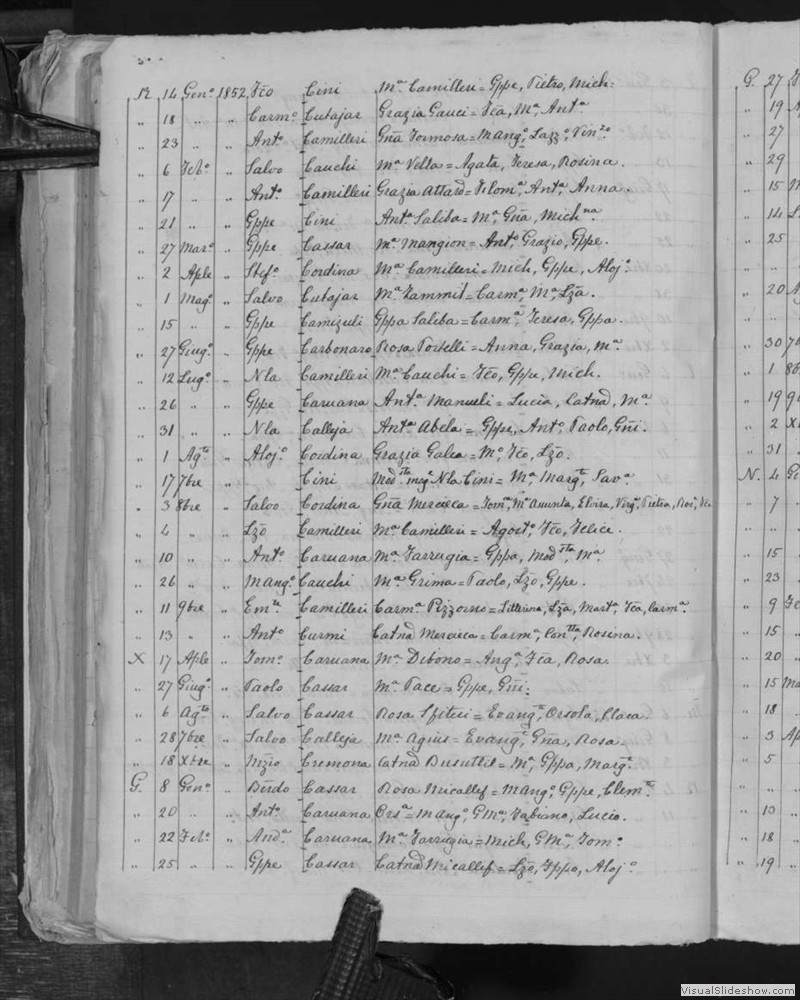 R 14 Genº 1852 Fcõ Cini Mª Camilleri = Gppe, Pietro, Mich:
„ 18 „ „ Carmº Cutajar Grazia Gauci = Fcã, Mª, Antª
„ 23 „ „ Antº Camilleri Gñã Formosa = Mangº, Lazzº, Vinzº
„ 6 Febº „ Salvo Cauchi Mª Vella = Agata, Teresa, Rosina.
„ 17 „ „ Antº Camilleri Grazia Attard = Filomª, Antª, Anna.
„ 21 „ „ Gppe Cini Antª Saliba = Mª, Gñã, Michna
„ 27 Marº „ Gppe Cassar Mª Mangion = Antº Grazio, Gppe.
„ 2 Aple „ Stefº Cordina Mª Camilleri = Mich, Gppe, Alojº
„ 1 Magº „ Salvo Cutajar Mª Zammit = Carmª, Mª, Lzã.
„ 15 „ „ Gppe Camizuli Gppa Saliba = Carmª, Teresa, Gppa.
„ 27 Giugº „ Gppe Carbonaro Rosa Portelli = Anna, Grazia, Mª.
„ 12 Lugº „ Nla Camilleri Mª Cauchi = Fcõ, Gppe, Mich.
„ 26 „ „ Gppe Caruana Antª Manueli = Lucia, Catnã, Mª
„ 31 „ „ Nla Calleja Antª Abela = Gppe, Antº, Paolo, Gñi.
„ 1 Agto „ Alojº Cordina Grazia Galea = Mº, Fcõ, Lzõ.
„ 17 7bre „ Cini Modtta mogª Nla Cini = Mª, Margta, Savª
„ 3 8bre „ Salvo Cordina Gñã Mercieca = Tomª, Mª Assunta, Elvira, Virgª, Pietra, Rosª,
„ 4 „ „ Lzõ Camilleri Mª Camilleri = Agostº, Fcõ, Felice.
„ 10 „ „ Antº Caruana Mª Farrugia = Gppa, Modtta, Mª
„ 26 „ „ Mangº Cauchi Mª Grima = Paolo, Lzõ, Gppe.
„ 11 9bre „ Emle Camilleri Carmª Pizzorno = Litterina, Lzã, Martª, Fcã, Carmª
„ 13 „ „ Antº Curmi Catnã Mercieca = Carmª, Conttã, Rosina.
X 17 Aple „ Tomº Caruana Mª Dibono = Angª, Fcã, Rosa.
„ 27 Giugº „ Paolo Cassar Mª Pace = Gppe, Gñi.
„ 6 Agto „ Salvo Cassar Rosa Sfiteri = Evangta, Orsola, Clara.
„ 28 7bre „ Salvo Calleja Mª Agius = Evangª, Gñã, Rosa.
„ 18 Xbre „ Nzio Cremona Catnã Busuttil = Mª, Gppa, Margª
G. 8 Genº „ Berdo Cassar Rosa Micallef = Mangº, Gppe, Clemte
„ 20 „ „ Antº Caruana Orsª = Mangº GMª, Fabiano, Lucio.
„ 22 Febº „ Andª Caruana Mª Farrugia = Mich, GMª, Tomº
„ 25 „ Gppe Cassar Catnã Micallef = Lzõ, Fppo, Alojº
G. 27
„ 19
„ 27
„ 29
„ 15
„ 14
„ 25
„ „
„ 20
„ „
„ 30
„ 1
„ 19
„ 2
„ 31
N. 4
„ 7
„ 15
„ 23
„ 9
„ 15
„ 20
„ 15
„ 18
„ 3
„ 5
„ „
„ 13
„ 18
„ 19
VisualSlideshow.com